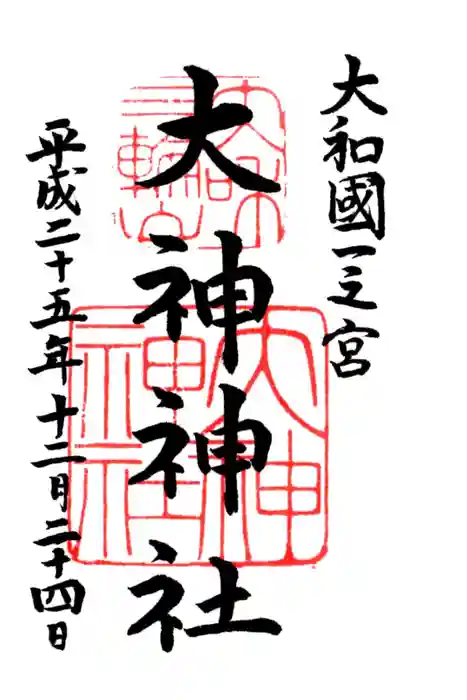 大和國一之宮
大神神社
平成二十五年十二月二十四日
三輪山
大神神社